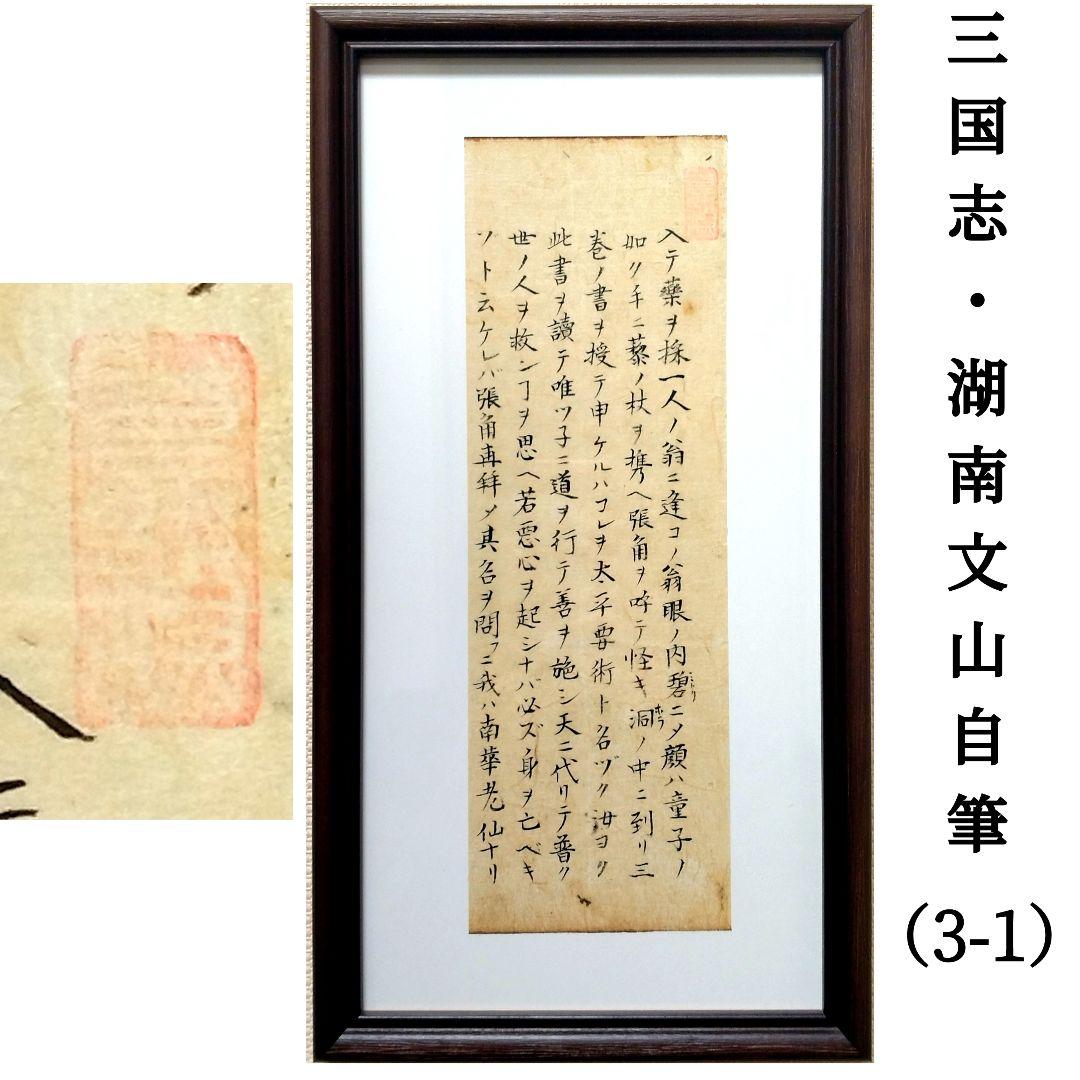 三国志・湖南文山自筆
（3-1）
入テ藥ヲ採一人ノ翁ニ逢コノ翁眼ノ内碧ニメ顔ハ童子ノ
みどり
如ク手ニ藜ノ杖ヲ携ヘ張角ヲ呼テ怪キ洞ノ中ニ到リ三
ホラ
巻ノ書ヲ授テ申ケルハコレヲ太平要術ト名ヅク汝ヨク
此書ヲ讀テ唯ツ子ニ道ヲ行テ善ヲ施シ天ニ代リテ普ク
世ノ人ヲ救ンヿヲ思ヘ若惡心ヲ起シナバ必ズ身ヲ亡ベキ
ゾト云ケレバ張角再拜メ其名ヲ問フニ我ハ南華老仙ナリ